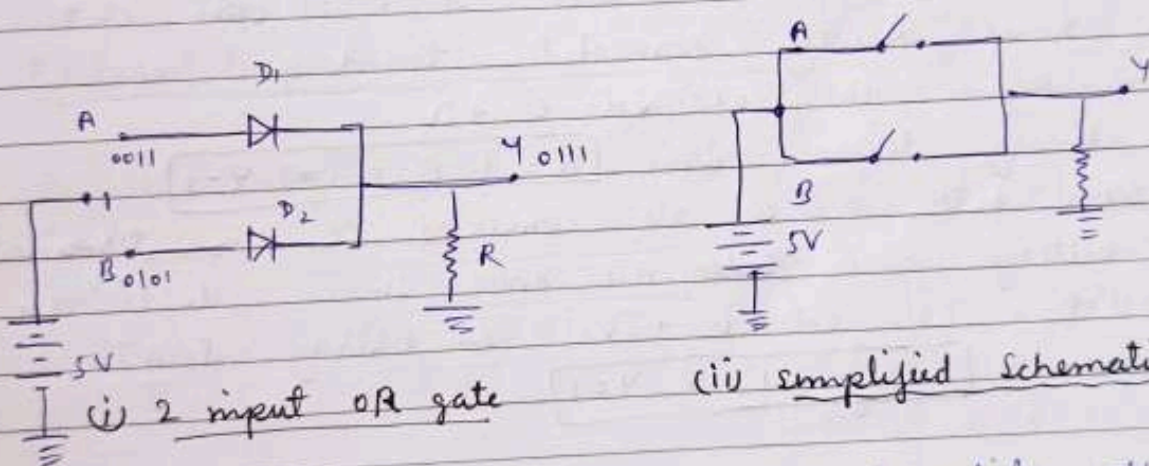 D1
A
0011
Y 0111
1
D2
B 0101
R
5V
(i) 2 input OR gate
A
Y
B
5V
(ii) simplified Schemati